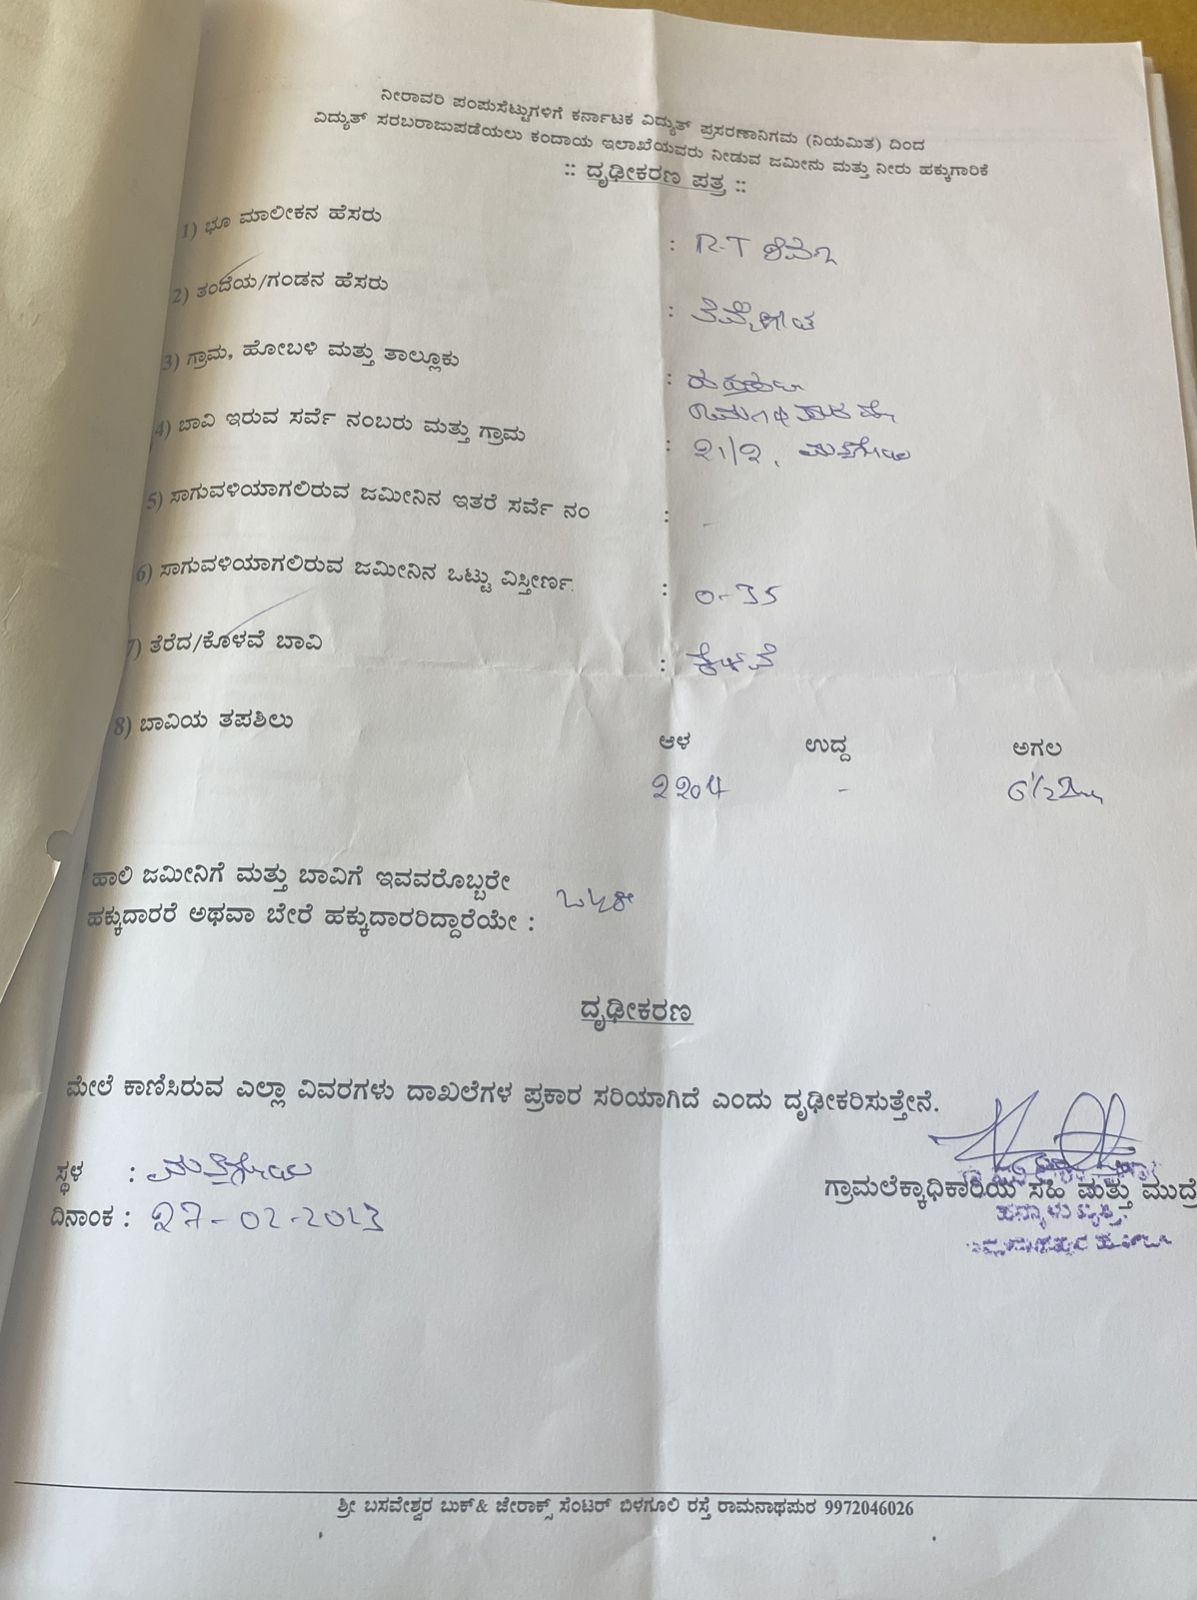 ನೀರಾವರಿ ಪಂಪುಸೆಟ್ಟುಗಳಿಗೆ ಕರ್ನಾಟಕ ವಿದ್ಯುತ್ ಪ್ರಸರಣಾನಿಗಮ (ನಿಯಮಿತ) ದಿಂದ
ವಿದ್ಯುತ್ ಸರಬರಾಜುಪಡೆಯಲು ಕಂದಾಯ ಇಲಾಖೆಯವರು ನೀಡುವ ಜಮೀನು ಮತ್ತು ನೀರು ಹಕ್ಕುಗಾರಿಕೆ
:: ದೃಢೀಕರಣ ಪತ್ರ ::
1) ಭೂ ಮಾಲೀಕನ ಹೆಸರು : R-T
2) ತಂದೆಯ/ಗಂಡನ ಹೆಸರು :
3) ಗ್ರಾಮ, ಹೋಬಳಿ ಮತ್ತು ತಾಲ್ಲೂಕು :
4) ಬಾವಿ ಇರುವ ಸರ್ವೆ ನಂಬರು ಮತ್ತು ಗ್ರಾಮ : 21/2,
5) ಸಾಗುವಳಿಯಾಗಲಿರುವ ಜಮೀನಿನ ಇತರೆ ಸರ್ವೆ ನಂ : -
6) ಸಾಗುವಳಿಯಾಗಲಿರುವ ಜಮೀನಿನ ಒಟ್ಟು ವಿಸ್ತೀರ್ಣ : 0-35
7) ತೆರೆದ/ಕೊಳವೆ ಬಾವಿ : ಕೊಳವೆ
8) ಬಾವಿಯ ತಪಶಿಲು
ಆಳ ಉದ್ದ ಅಗಲ
- 6 1/2
ಹಾಲಿ ಜಮೀನಿಗೆ ಮತ್ತು ಬಾವಿಗೆ ಇವವರೊಬ್ಬರೇ
ಹಕ್ಕುದಾರರೆ ಅಥವಾ ಬೇರೆ ಹಕ್ಕುದಾರರಿದ್ದಾರೆಯೇ :
ದೃಢೀಕರಣ
ಮೇಲೆ ಕಾಣಿಸಿರುವ ಎಲ್ಲಾ ವಿವರಗಳು ದಾಖಲೆಗಳ ಪ್ರಕಾರ ಸರಿಯಾಗಿದೆ ಎಂದು ದೃಢೀಕರಿಸುತ್ತೇನೆ.
ಸ್ಥಳ :
ಗ್ರಾಮಲೆಕ್ಕಾಧಿಕಾರಿಯ ಸಹಿ ಮತ್ತು ಮುದ್ರೆ
ದಿನಾಂಕ : 27-02-2023
ಶ್ರೀ ಬಸವೇಶ್ವರ ಬುಕ್& ಜೇರಾಕ್ಸ್ ಸೆಂಟರ್ ಬಿಳಗೂಲಿ ರಸ್ತೆ ರಾಮನಾಥಪುರ 9972046026